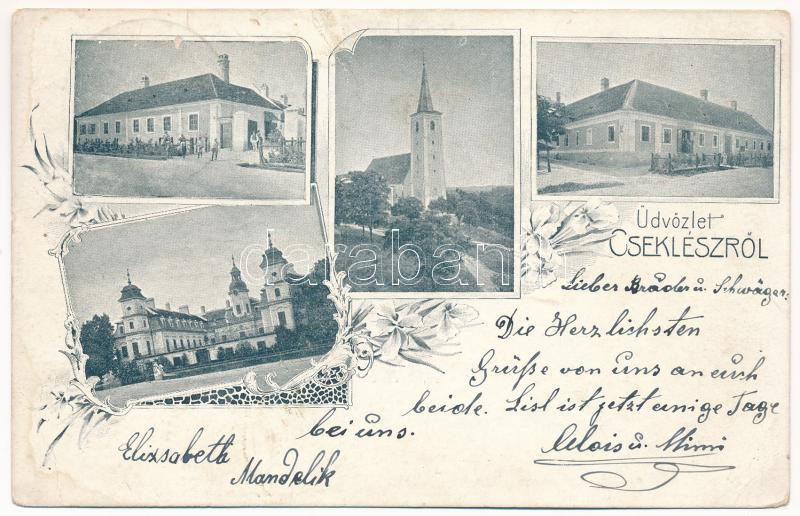 Üdvözlet
CSEKLÉSZRŐL
Lieber Bruder u. Schwäger.
Die Herzlichsten
Grüße von uns an euch
beide. Lisl ist jetzt einige Tage
bei uns.
Alois u. Mimi
Elizsabeth
Mandelik
darabanth